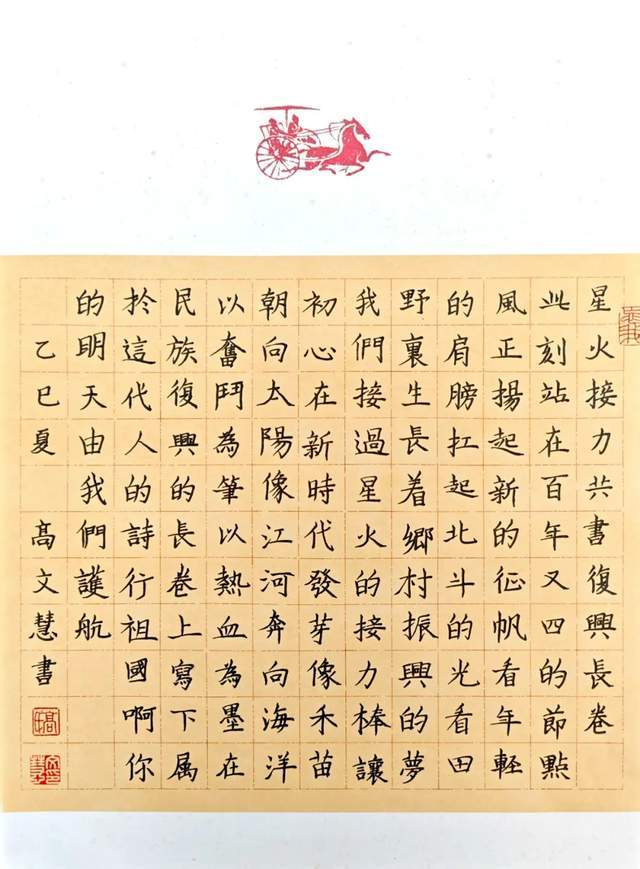 星火接力共書復興長卷
此刻站在百年又四的節點
風正揚起新的征帆看年輕
的肩膀扛起北斗的光看田
野裏生長着鄉村振興的夢
我們接過星火的接力棒讓
初心在新時代發芽像禾苗
朝向太陽像江河奔向海洋
以奮鬥為筆以熱血為墨在
民族復興的長卷上寫下属
於這代人的詩行祖國啊你
的明天由我們護航
乙巳夏 高文慧書